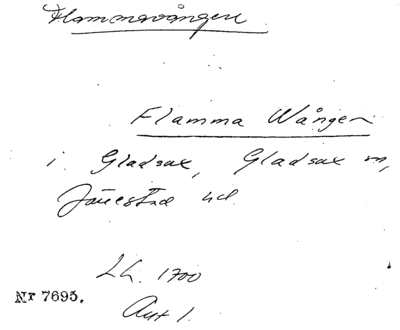 Flammavången
Flamma Wången
i Gladsax, Gladsax sn,
Järrestad hd.
LK. 1700
Akt 1.
Nr 7695.